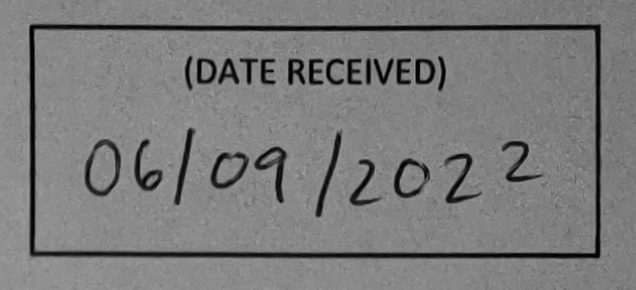 (DATE RECEIVED)
06/09/2022